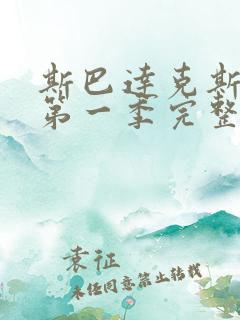 斯巴达克斯
第一季完整
袁征
未经同意禁止转载